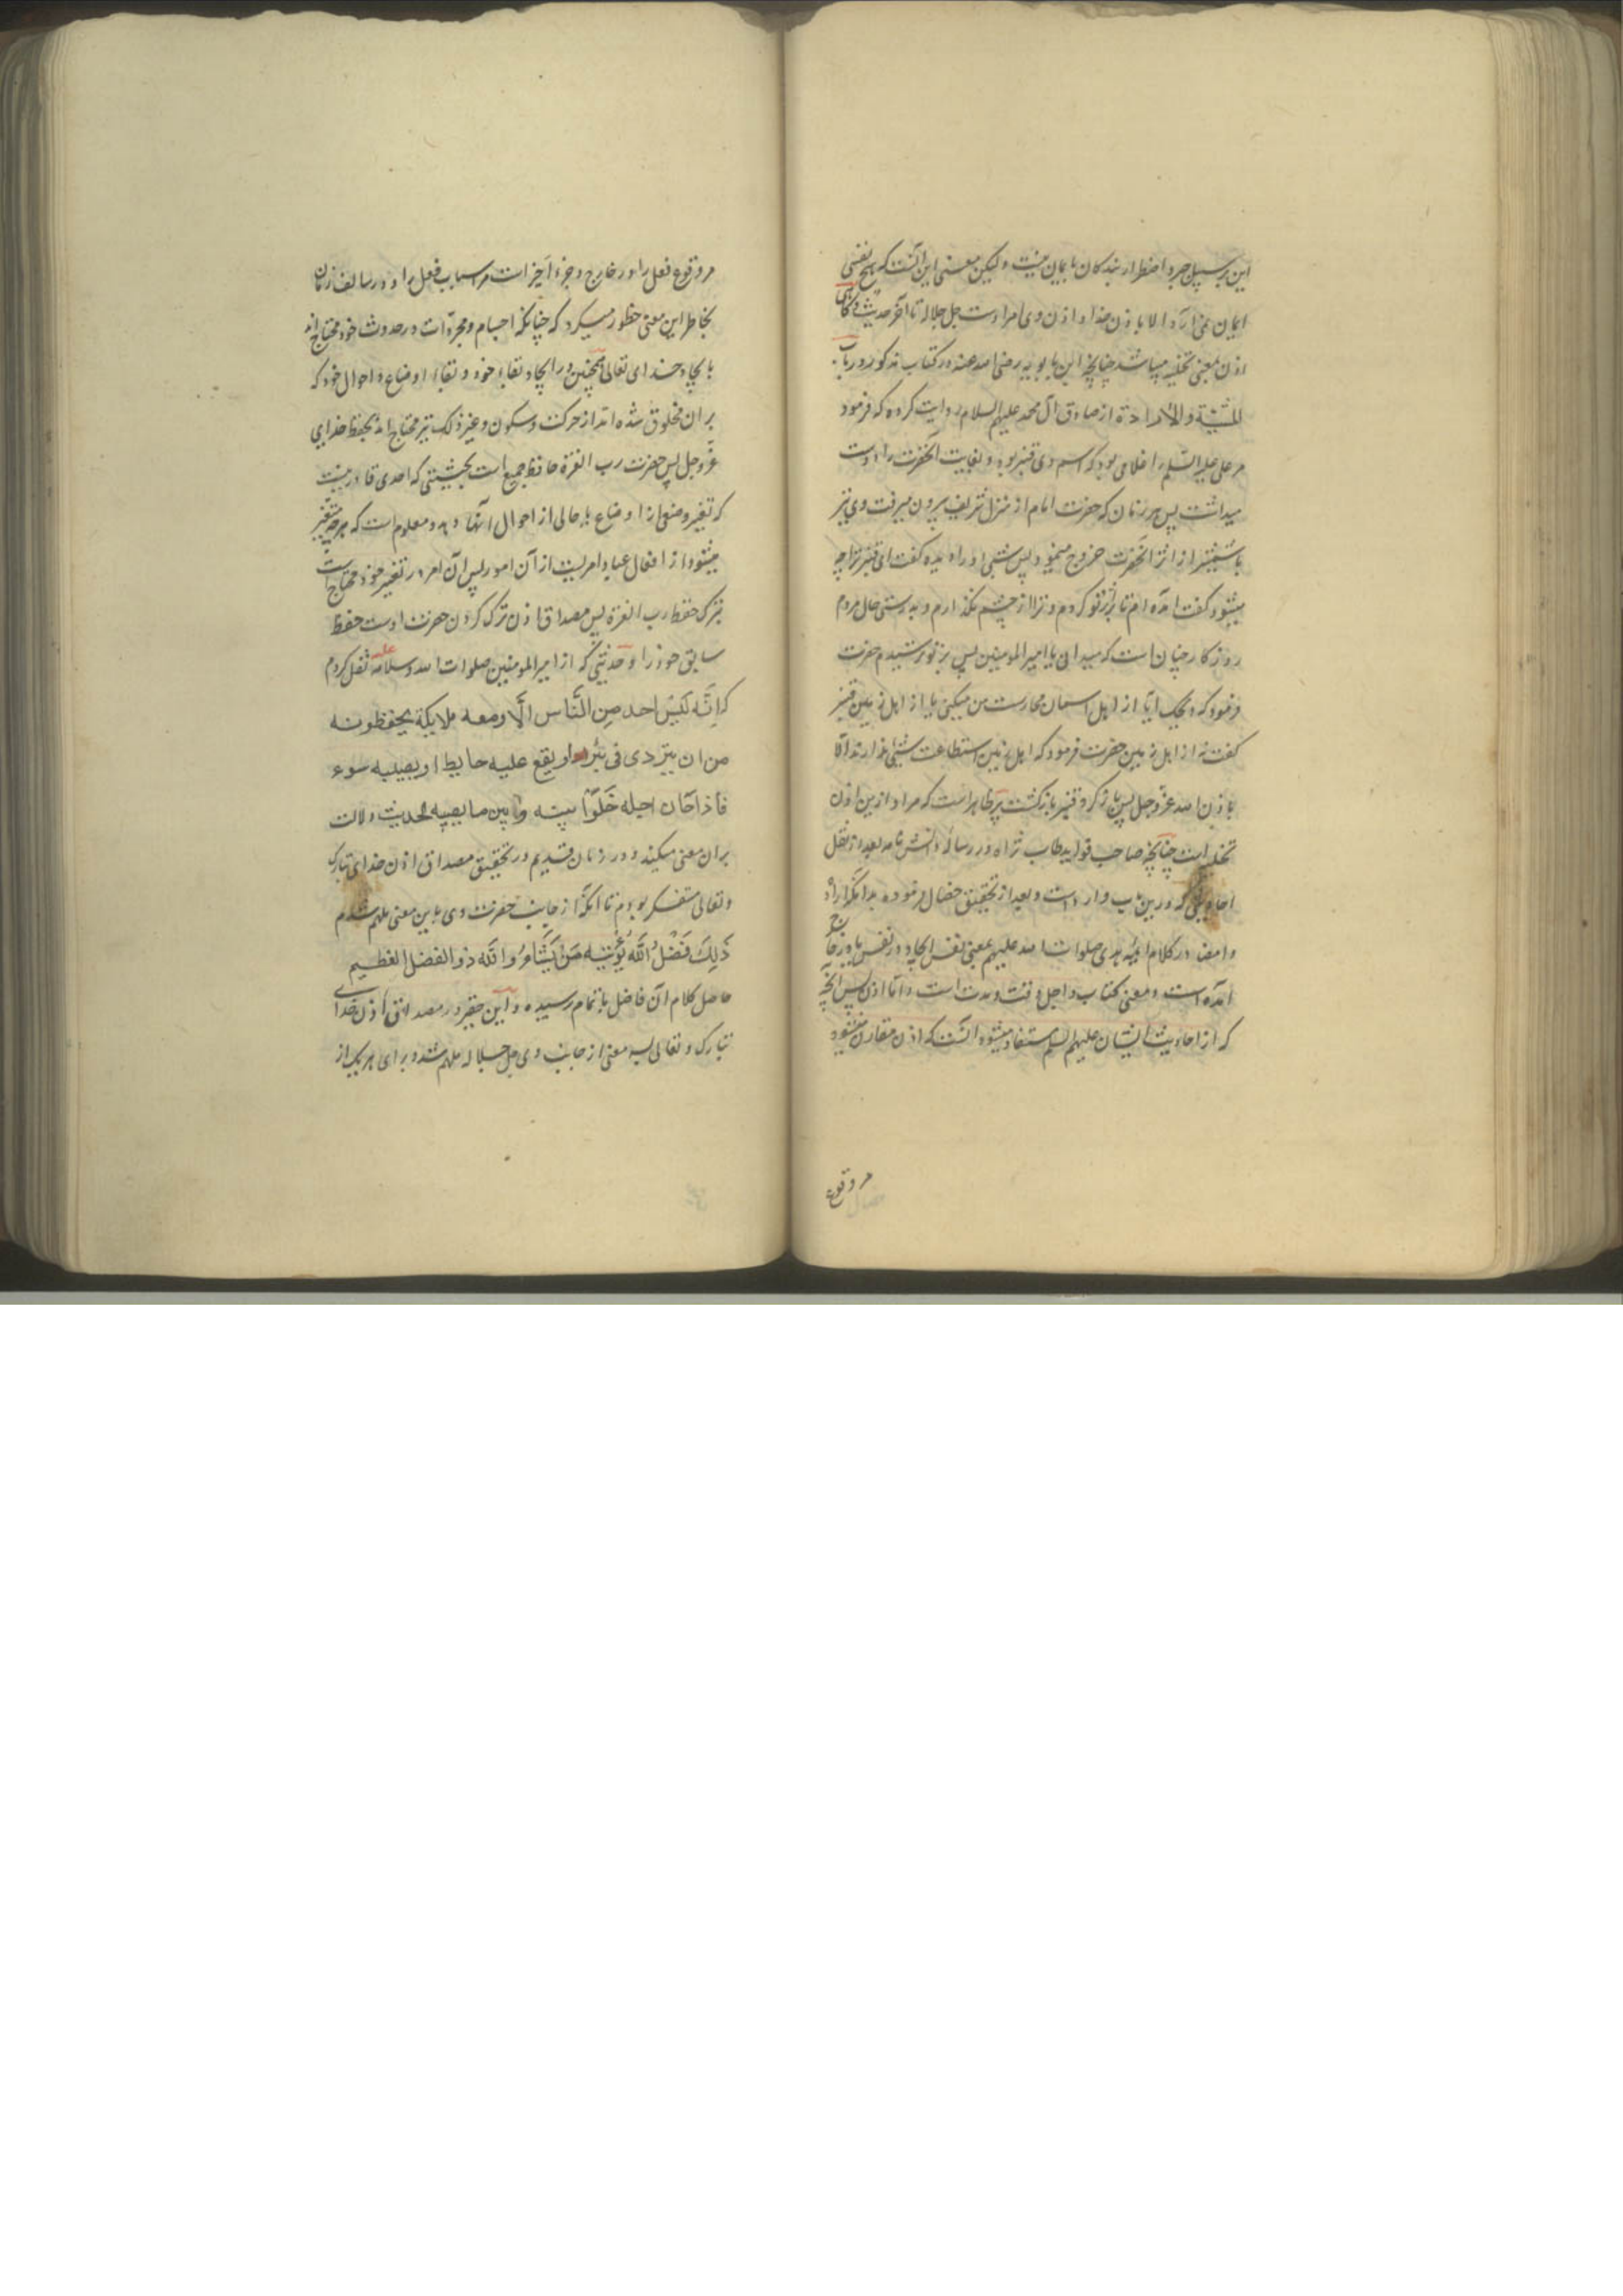 این بر سبیل جبر و اضطرار بندکان بایمان نیست و لیکن معنی این آنست که هیچ نفسی
ایمان نمی آرد الا باذن خدا و اذن وی امر اوست جل جلاله تا آخر حدیث و کاهی
اذن بمعنی تخلیه میباشد چنانچه ابن بابویه رضی الله عنه در کتاب مذکور در باب
المشیّة والارادة از صادق آل محمد علیهم السلام روایت کرده که فرمود
مر علی علیه السّلم را غلامی بود که اسم وی قنبر بود و بغایت آنحضرت را دوست
میداشت پس هر زمان که حضرت امام از منزل شریف بیرون میرفت وی نیز
با شمشیر از اثر آنحضرت خروج مینمود پس شبی او را دیده گفت ای قنبر ترا چه
میشود گفت آمده ام تا بر اثر تو کردم و ترا از چشم نگذارم و بدرستی حال مردم
روزکار چنان است که میدانی یا امیر المومنین پس بر تو ترسیدم حضرت
فرمود که ویحک آیا از اهل اسمان محارست من میکنی یا از اهل زمین قنبر
گفت نه از اهل زمین حضرت فرمود که اهل زمین استطاعت شیئی ندارند الّا
باذن الله عزّ وجل پس باز کرد قنبر بازکشت پر ظاهر است که مراد ازین اذن
تخلیه است چنانچه صاحب فواید طاب ثراه در رساله دانش نامه بعد از نقل
احادیثی که درین باب وارد است و بعد از تحقیق خصال فرموده بدانکه اراده
وامضا در کلام ائمّه هدی صلوات الله علیهم بمعنی نفس ایجاد در نفس یا در خارج
آمده است و معنی کتاب و اجل وقت و مدت است و امّا اذن پس آنچه
که از احادیث ایشان علیهم السلم مستفاد میشود آنست که اذن مقارن میشود
مر وقوع
مر وقوع فعل را در خارج و جزء اخیر است مر اسباب فعل را و در سالف زمان
بخاطر این معنی خطور میکرد که چنانکه اجسام و مجردّات در حدوث خود محتاج اند
بایجاد خدای تعالی همچنین در ایجاد بقاء خود و بقاء اوضاع و احوال خود که
بران مخلوق شده اند از حرکت و سکون و غیر ذلک نیز محتاج اند بحفظ خدای
عزّ وجل پس حضرت رب العزة حافظ جمیع است بحیثیتی که احدی قادر نیست
که تغیر وضعی از اوضاع یا حالی از احوال آنها دهد و معلوم است که هر چه متغیر
میشود از افعال عباد امریست از آن امور پس آن امر در تغیر خود محتاج است
بترک حفظ رب العزة پس مصداق اذن ترک کردن حضرت اوست حفظ
سابق خود را و حدیثی که از امیر المومنین صلوات الله وسلامه علیه نقل کردم
که اِنَّه لَیسَ احد مِن النَّاس الّا ومعه ملایکة یحفظونه
من ان یتردی فی بئر او یقع علیه حایط او یصیبه سوء
فاذا کان اجله خَلَّوا بینه وبین ما یصیبه الحدیث دلالت
بران معنی میکند و در زمان قدیم در تحقیق مصداق اذن خدای تبارک
وتعالی متفکر بودم تا آنکه از جانب حضرت وی باین معنی ملهم شدم
ذَلِکَ فَضْلُ اللَّه یُؤْتیه مَنْ یَشَاءُ وَاللَّه ذو الفضل العظیم
حاصل کلام آن فاضل باتمام رسیده و این حقیر در مصداق اذن خدای
تبارک و تعالی بسه معنی از جانب وی جل جلاله ملهم شد و برای هر یک از